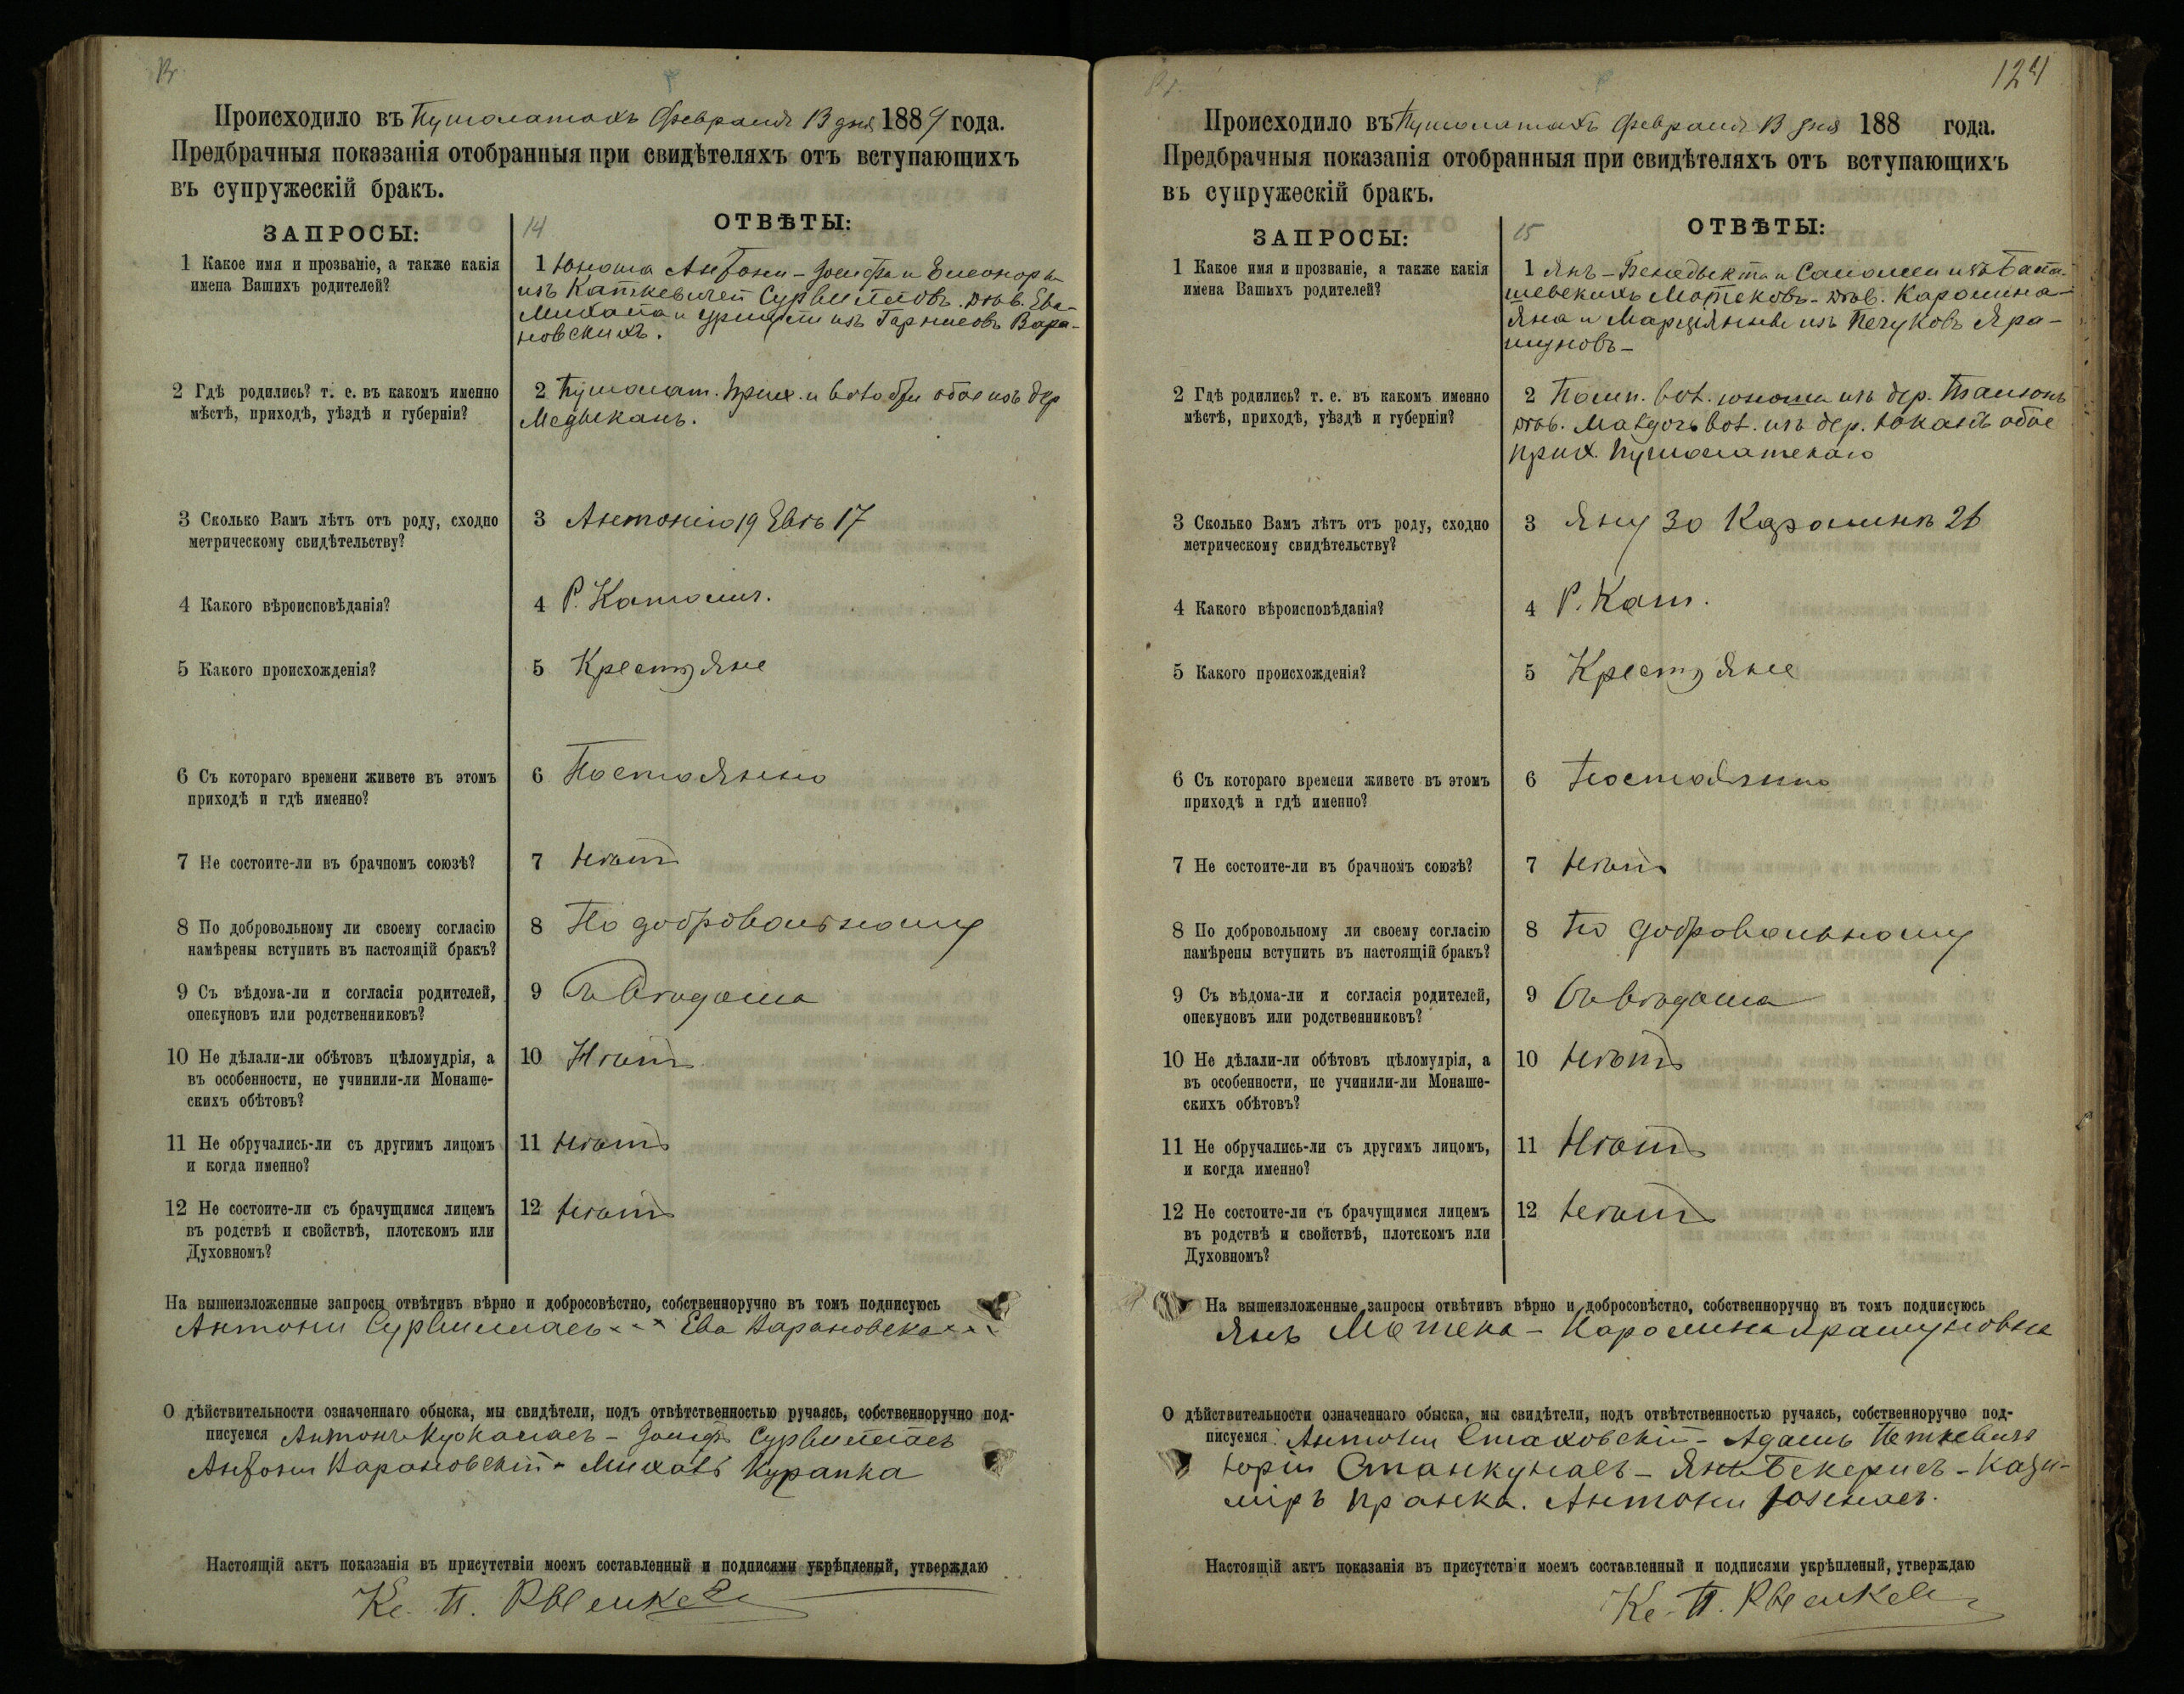 Происходило въ Пушолатахъ Февраля 13 дня 1889 года.
Предбрачныя показанія отобранныя при свидѣтеляхъ отъ вступающихъ
въ супружескій бракъ.
ЗАПРОСЫ:
14 ОТВѢТЫ:
1 Какое имя и прозваніе, а также какія
имена Вашихъ родителей?
1 Юноша Антони - Іосифа и Елеоноры
изъ Каткевичей дѣв. Ева-
Михала и изъ Вара-
новскихъ.
2 Гдѣ родились? т. е. въ какомъ именно
мѣстѣ, приходѣ, уѣздѣ и губерніи?
2 Пушолат. прих. и обое изъ дер
3 Сколько Вамъ лѣтъ отъ роду, сходно
метрическому свидѣтельству?
3 Антонію 19 Евѣ 17
4 Какого вѣроисповѣданія?
4 Р. Католич.
5 Какого происхожденія?
5 Крестьяне
6 Съ котораго времени живете въ этомъ
приходѣ и гдѣ именно?
6 Постоянно
7 Не состоите-ли въ брачномъ союзѣ?
7 Нѣтъ
8 По добровольному ли своему согласію
намѣрены вступить въ настоящій бракъ?
8 По добровольному
9 Съ вѣдома-ли и согласія родителей,
опекуновъ или родственниковъ?
9 Съ вѣдома
10 Не дѣлали-ли обѣтовъ цѣломудрія, а
въ особенности, не учинили-ли Монаше-
скихъ обѣтовъ?
10 Нѣтъ
11 Не обручались-ли съ другимъ лицомъ
и когда именно?
11 Нѣтъ
12 Не состоите-ли съ брачущимся лицемъ
въ родствѣ и свойствѣ, плотскомъ или
Духовномъ?
12 Нѣтъ
На вышеизложенные запросы отвѣтивъ вѣрно и добросовѣстно, собственноручно въ томъ подписуюсь
Антони × × × Ева Варановска × × ×
О дѣйствительности означеннаго обыска, мы свидѣтели, подъ отвѣтственностью ручаясь, собственноручно под-
писуемся Антонъ - Іосифъ
Антони Варановскій - Михалъ Курапка
Настоящій актъ показанія въ присутствіи моемъ составленный и подписями укрѣпленый, утверждаю
Кс. П.
124
Происходило въ Пушолатахъ Февраля 13 дня 188 года.
Предбрачныя показанія отобранныя при свидѣтеляхъ отъ вступающихъ
въ супружескій бракъ.
ЗАПРОСЫ:
15 ОТВѢТЫ:
1 Какое имя и прозваніе, а также какія
имена Вашихъ родителей?
1 Янъ - Бенедыкта и Саломеи изъ
дѣв. Каролина-
Яна и Марціянны изъ Печуковъ Яра-
шуновъ -
2 Гдѣ родились? т. е. въ какомъ именно
мѣстѣ, приходѣ, уѣздѣ и губерніи?
2 юноша изъ дер.
дѣв. изъ дер. обое
прих. Пушолатскаго
3 Сколько Вамъ лѣтъ отъ роду, сходно
метрическому свидѣтельству?
3 Яну 30 Каролинѣ 26
4 Какого вѣроисповѣданія?
4 Р. Кат.
5 Какого происхожденія?
5 Крестьяне
6 Съ котораго времени живете въ этомъ
приходѣ и гдѣ именно?
6 Постоянно
7 Не состоите-ли въ брачномъ союзѣ?
7 Нѣтъ
8 По добровольному ли своему согласію
намѣрены вступить въ настоящій бракъ?
8 По добровольному
9 Съ вѣдома-ли и согласія родителей,
опекуновъ или родственниковъ?
9 Съ вѣдома
10 Не дѣлали-ли обѣтовъ цѣломудрія, а
въ особенности, не учинили-ли Монаше-
скихъ обѣтовъ?
10 Нѣтъ
11 Не обручались-ли съ другимъ лицомъ,
и когда именно?
11 Нѣтъ
12 Не состоите-ли съ брачущимся лицемъ
въ родствѣ и свойствѣ, плотскомъ или
Духовномъ?
12 Нѣтъ
На вышеизложенные запросы отвѣтивъ вѣрно и добросовѣстно, собственноручно въ томъ подписуюсь
Янъ Мотека - Каролина Ярашуновна
О дѣйствительности означеннаго обыска, мы свидѣтели, подъ отвѣтственностью ручаясь, собственноручно под-
писуемся Антони Стаховскій - Адамъ Петкевичъ
Юрій Станкунасъ - Янъ Бекерисъ - Кази-
міръ Пранска. Антони
Настоящій актъ показанія въ присутствіи моемъ составленный и подписями укрѣпленый, утверждаю
Кс. П.